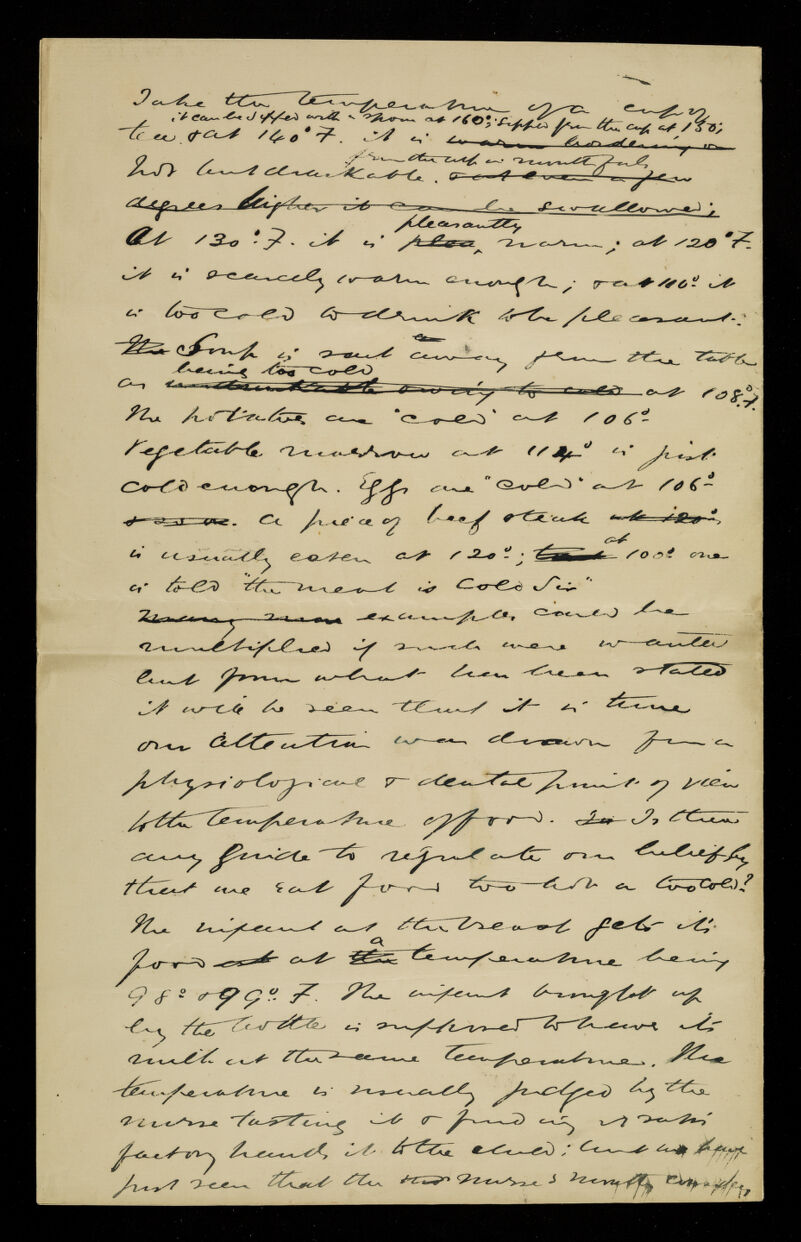 Take the temperature of a cup of
it can be sipped with a spoon at 160°; sipped from the cup at 150°;
tea & at 140° F. it is warm bordering on
from the cup in mouthfuls
hot but drinkable. & at even a few
degrees higher it can be swallowed;
pleasantly
At 130° F. it is plea, warm; at 120° F.
it is scarcely warm enough; & at 110° it
is too cold to drink to be pleasant.
The Soup is sent away from the table
being too cold
as undrinkable owing to cold at 108° F.
The potatoes are "cold" at 106°
Vegetable marrow at 114° is just
cold enough. Eggs are "cold" at 106°
& so on. A piece of beef steak at 120°
is usually eaten at 120°; at 100° one
is told "the meat is Cold Sir"
Many more examples could be
multiplied if such were wanted
but from what has been stated
it will be seen that it is time
our attention was drawn from a
physiological & dental point of view
to the temperature of food. Is there
any guide to regulate our belief by
that we eat food too hot or too cold?
The infant at the breast gets its
food at a the temperature being
98° & 99° F. The infant brought up
by the bottle is supposed to have its
milk at the same temperature. The
temperature is usually judged by the
nurse tasting it & finding it satis
factory hands it to the child; but we have
just seen that the nurse's mouth